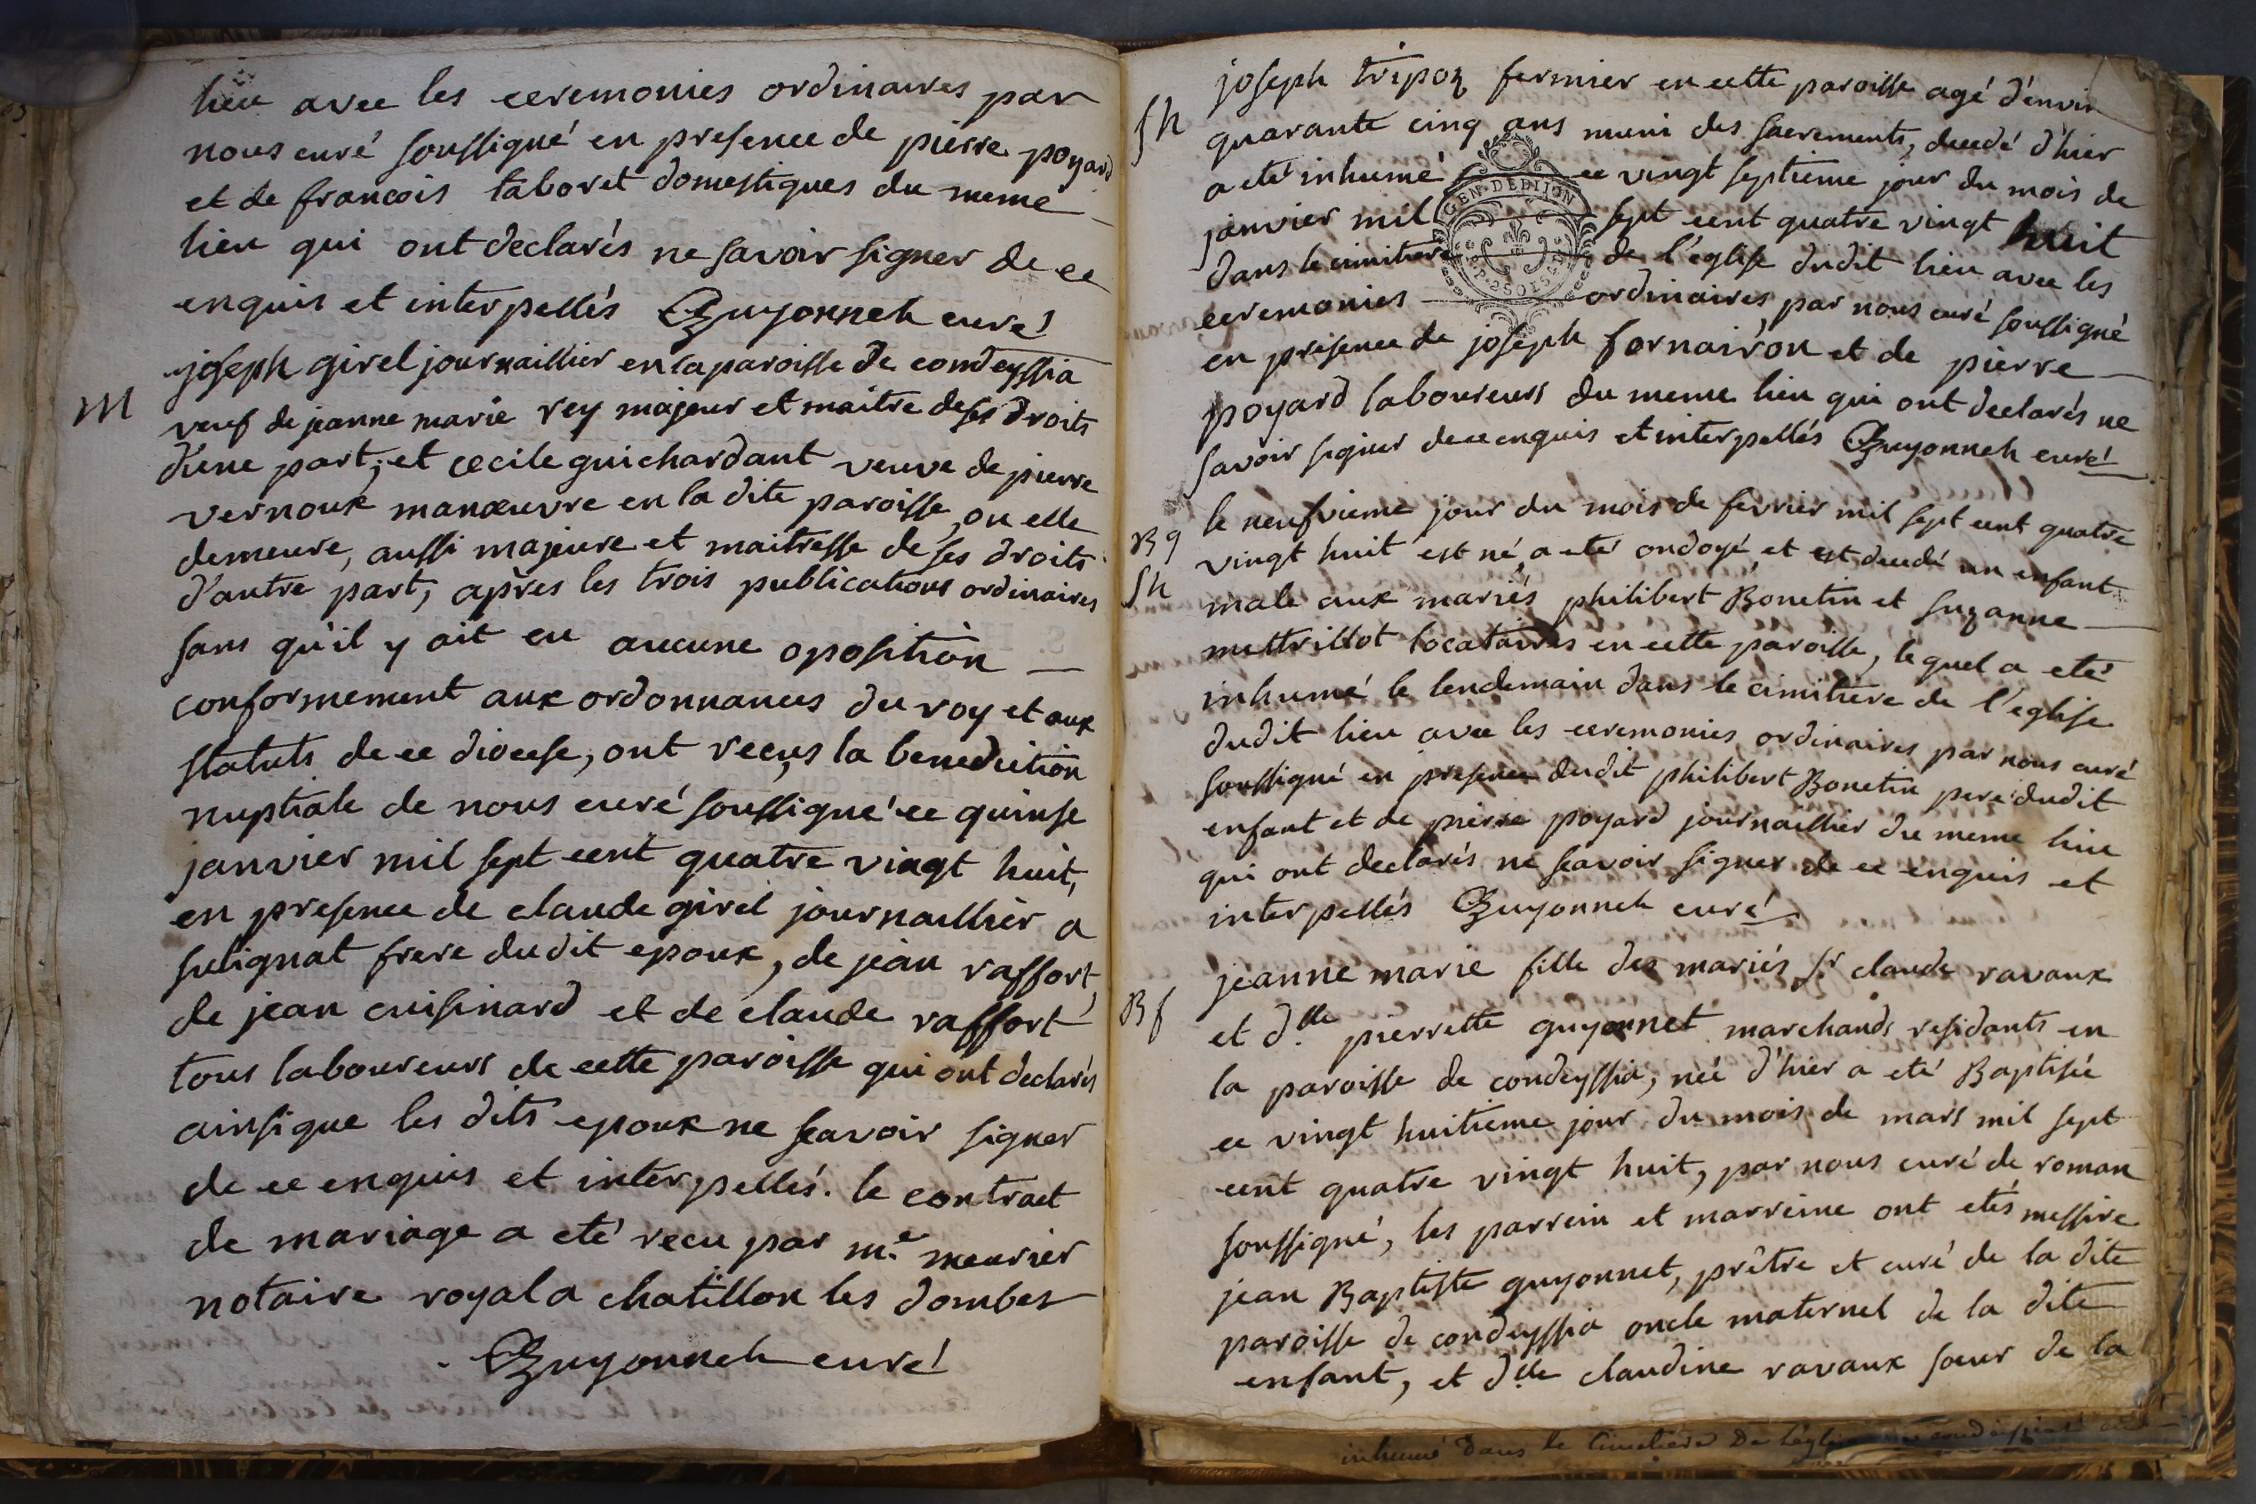 lieu avec les ceremonies ordinaires par
nous curé soussigné en presence de pierre poyard
et de francois taboret domestiques du meme
lieu qui ont declarés ne savoir signer de ce
enquis et interpellés Guyonnet curé
M
joseph girel journaillier en la paroisse de condeyssia
veuf de jeanne marie rey majeur et maitre de ses droits
d'une part, et cecile guichardant veuve de pierre
vernoux manœuvre en la dite paroisse, ou elle
demeure, aussi majeure et maitresse de ses droits
d'autre part, après les trois publications ordinaires
sans qu'il y ait eu aucune oposition
conformement aux ordonnances du roy et aux
statuts de ce diocese, ont reçus la benediction
nuptiale de nous curé soussigné ce quinse
janvier mil sept cent quatre vingt huit,
en presence de claude girel journaillier a
sulignat frere dudit epoux, de jean raffort,
de jean cuisinard et de claude raffort
tous laboureurs de cette paroisse qui ont declarés
ainsi que les dits epoux ne sçavoir signer
de ce enquis et interpellés. le contract
de mariage a eté recu par m.e meurier
notaire royal a chatillon les dombes
Guyonnet curé
Sh
joseph tripoz fermier en cette paroisse agé d'environ
quarante cinq ans muni des sacrements, decedé d'hier
a eté inhumé ce vingt septieme jour du mois de
janvier mil sept cent quatre vingt huit
GEN. DE DIJON
dans le cimitiere de l'eglise dudit lieu avec les
ceremonies ordinaires par nous curé soussigné
en presence de joseph fornairon et de pierre
poyard laboureurs du meme lieu qui ont declarés ne
savoir signer de ce enquis et interpellés Guyonnet curé
Bg
Sh
le neufvieme jour du mois de fevrier mil sept cent quatre
vingt huit est né, a eté ondoyé, et est decedé un enfant
male aux mariés philibert Bonetin et suzanne
mettrillot locataires en cette paroisse, lequel a eté
inhumé le lendemain dans le cimitiere de l'eglise
dudit lieu avec les ceremonies ordinaires par nous curé
soussigné en presence dudit philibert Bonetin pere dudit
enfant et de pierre poyard journaillier du meme lieu
qui ont declarés ne sçavoir signer de ce enquis et
interpellés Guyonnet curé
Bf
jeanne marie fille des mariés Sr claude ravaux
et d.lle pierrette guyonnet marchands residants en
la paroisse de condeyssia, née d'hier a eté Baptisée
ce vingt huitieme jour du mois de mars mil sept
cent quatre vingt huit, par nous curé de roman
soussigné, les parrein et marreine ont etés messire
jean Baptiste guyonnet, prêtre et curé de la dite
paroisse de condeyssia oncle maternel de la dite
enfant, et d.lle claudine ravaux sœur de la
inhumé dans le Cimetiere De l'eglise